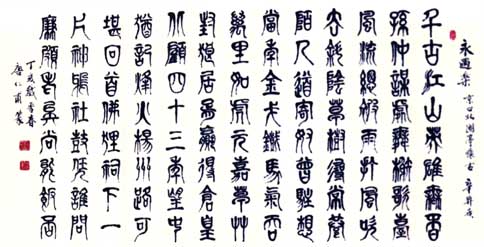 永遇樂 京口北固亭懷古 辛棄疾
千古江山英雄無覓
孫仲謀處舞榭歌臺
風流總被雨打風吹
去斜陽草樹尋常巷
陌人道寄奴曾住想
當年金戈鐵馬氣吞
萬里如虎元嘉草草
封狼居胥贏得倉皇
北顧四十三年望中
猶記烽火揚州路可
堪回首佛狸祠下一
片神鴉社鼓憑誰問
廉頗老矣尚能飯否
丁亥歲季春